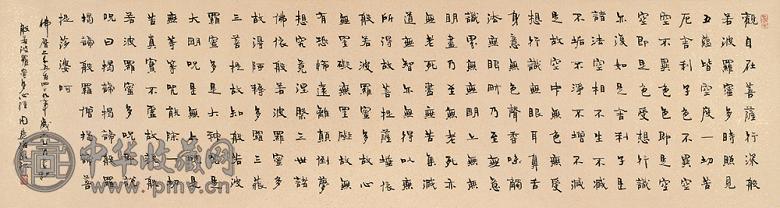 觀自在菩薩行深般
若波羅蜜多時照見
五蘊皆空度一切苦
厄舍利子色不異空
空不異色色即是空
空即是色受想行識
亦復如是舍利子是
諸法空相不生不滅
不垢不淨不增不減
是故空中無色無受
想行識無眼耳鼻舌
身意無色聲香味觸
法無眼界乃至無意
識界無無明亦無無
明盡乃至無老死亦
無老死盡無苦集滅
道無智亦無得以無
所得故菩提薩埵依
般若波羅蜜多故心
無罣礙無罣礙故無
有恐怖遠離顛倒夢
想究竟涅槃三世諸
佛依般若波羅蜜多
故得阿耨多羅三藐
三菩提故知般若波
羅蜜多是大神咒是
大明咒是無上咒是
無等等咒能除一切
苦真實不虛故說般
若波羅蜜多咒即說
咒曰揭諦揭諦般羅
揭諦般羅僧揭諦菩
提薩婆呵
佛曆二千五百四十九年
般若波羅蜜多心經
中华收藏网